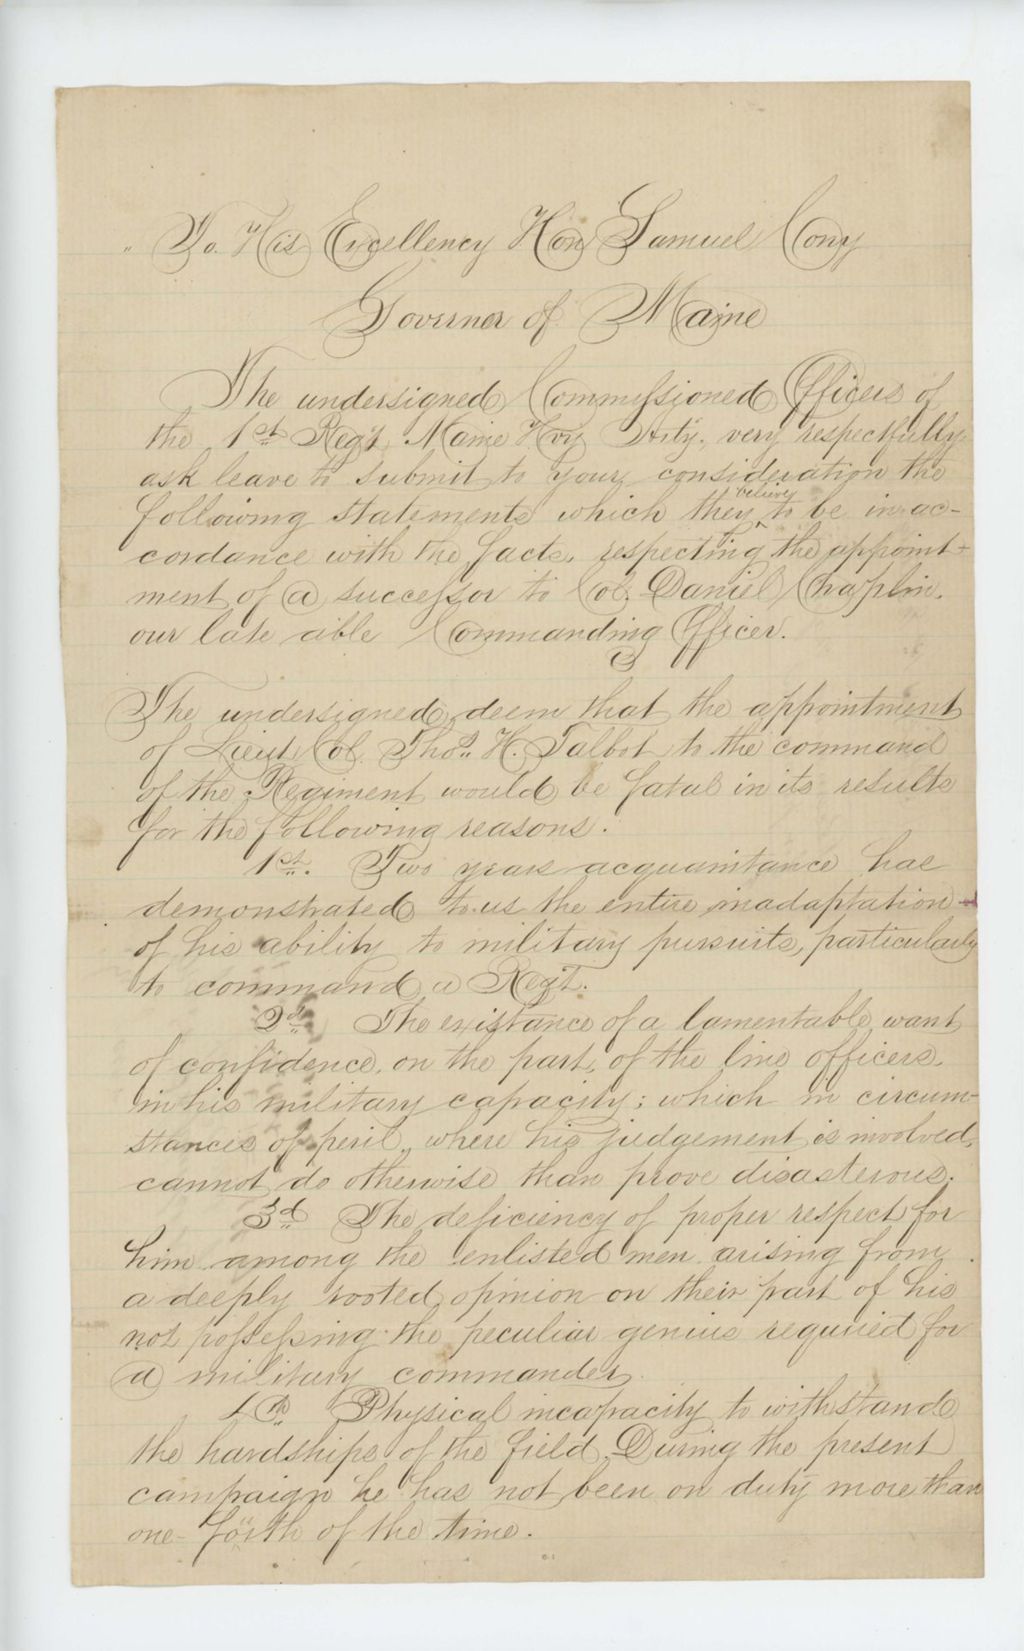 To. His Excellency Hon Samuel Cony
Governer of Maine
The undersigned Commissioned Officers of
the 1st Reg't Maine Hvy Arty, very respectfully
ask leave to submit to your consideration the
believe
following statements which they ^ to be in ac-
cordance with the facts, respecting the appoint-
ment of a successor to Col. Daniel Chaplin,
our late able Commanding Officer.
The undersigned deem that the appointment
of Lieut Col. Thos. H. Talbot to the command
of the Regiment would be fatal in its results
for the following reasons.
1st. Two years acquaintance has
demonstrated to us the entire inadaptation
of his ability to military pursuits, particularly
to command a Reg't.
2d The existance of a lamentable want
of confidence, on the part, of the line officers,
in his military capacity; which in circum-
stances of peril, where his judgement is involved,
cannot do otherwise than prove disasterous.
3d The deficiency of proper respect for
him among the enlisted men arising from
a deeply rooted opinion on their part of his
not possessing the peculiar genius required for
a military commander.
4th Physical incapacity to withstand
the hardships of the field. During the present
campaign he has not been on duty more than
one-forth of the time.